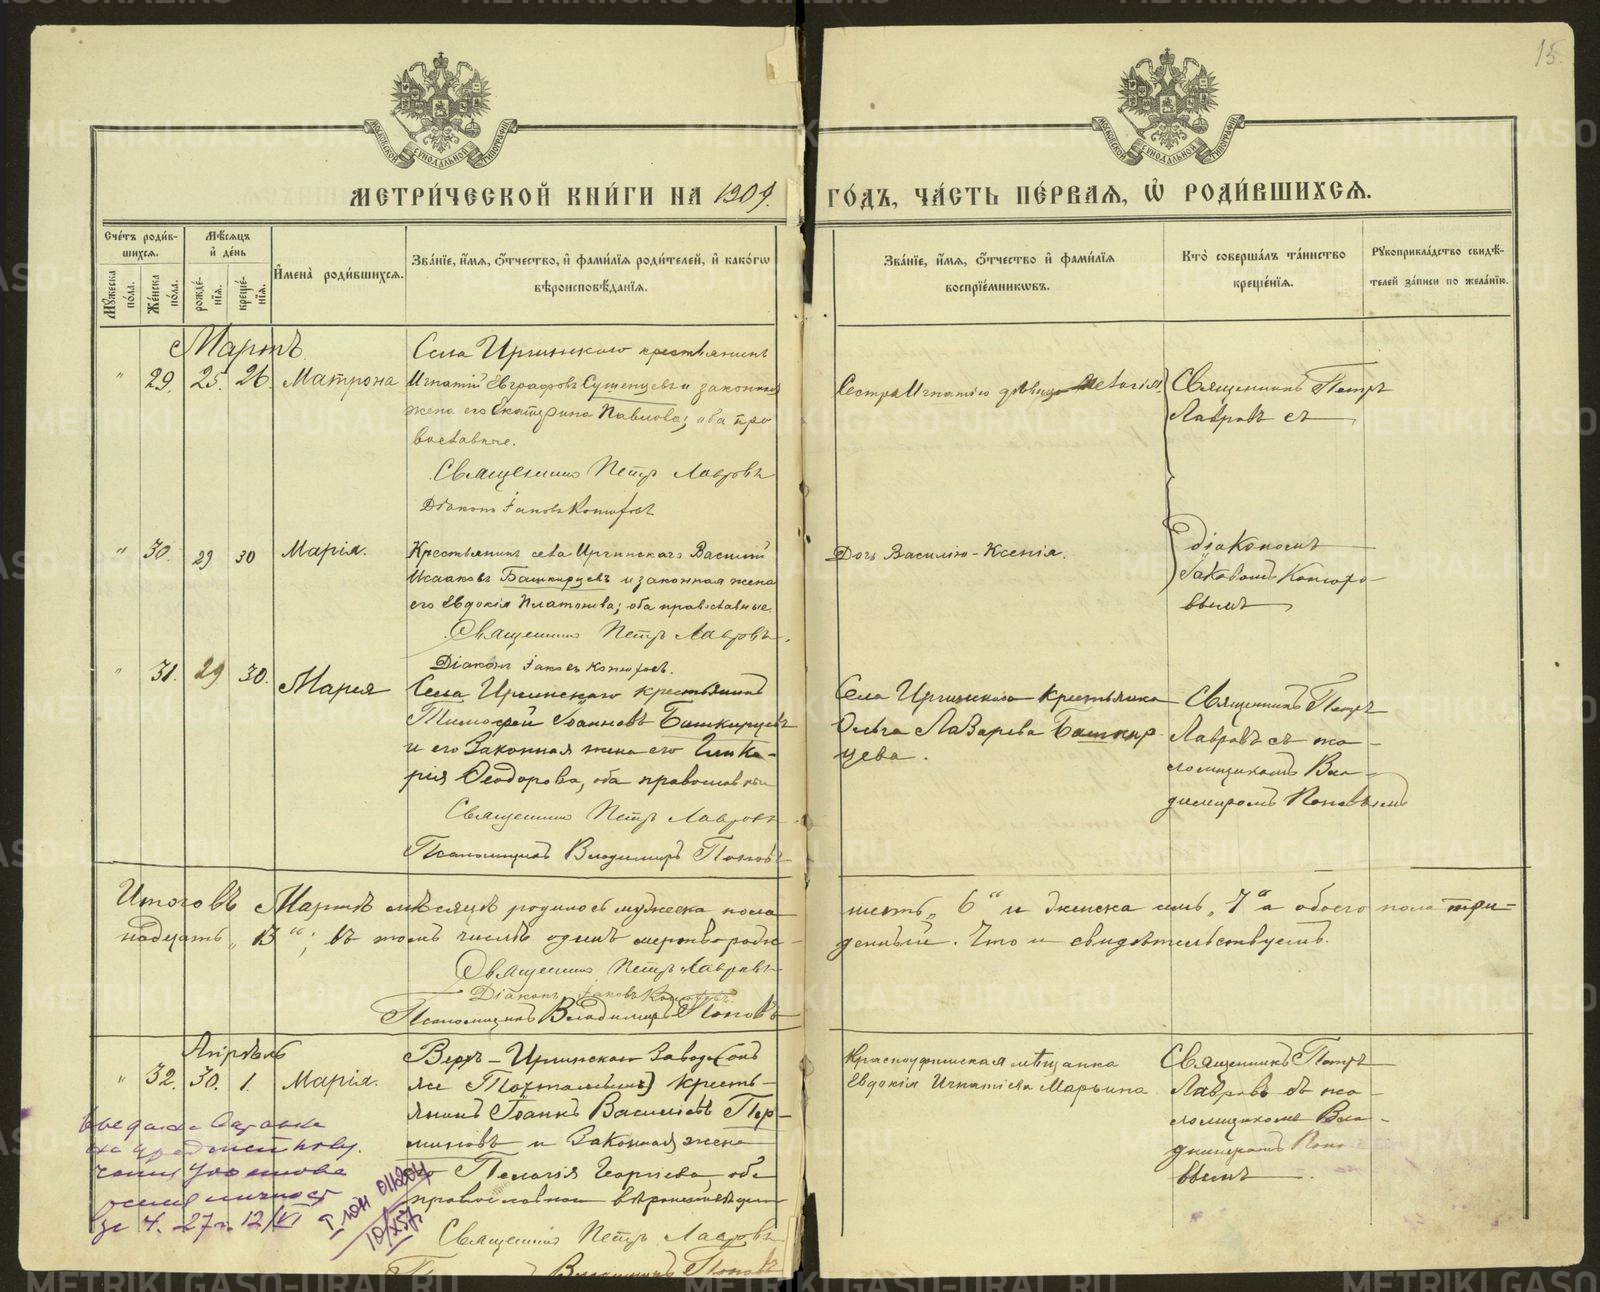 15.
МОСКОВСКОЙ СѴНОДАЛЬНОЙ ТИПОГРАФІИ
МОСКОВСКОЙ СѴНОДАЛЬНОЙ ТИПОГРАФІИ
МЕТРИ́ЧЕСКОЙ КНИ́ГИ НА 1909. ГО́ДЪ, ЧА́СТЬ ПЕ́РВАЯ, Ѡ҆ РОДИ́ВШИХСЯ.
Сче́тъ роди́в-
шихся.
Мꙋжеска по́ла.
Же́нска по́ла.
Мѣ́сяцъ
и҆ де́нь
рожде́-
нїя.
креще́-
нїя.
И҆мена̀ роди́вшихся.
Зва́нїе, и҆́мя, ѻ҆́тчество, и҆ фами́лїя роди́телей, и҆ како́гѡ
вѣроисповѣ́данїя.
Зва́нїе, и҆́мя, ѻ҆́тчество и҆ фами́лїя
воспрїе́мникѡвъ.
Кто̀ соверша́лъ та́инство
креще́нїя.
Рꙋкоприкла́дство свидѣ́-
телей за́писи по жела́нїю.
Мартъ.
" 29. 25. 26. Матрона
Села Иргинскаго крестьянинъ
Игнатій Евграфовъ Сушенцевъ и законная
жена его Екатерина Павлова; оба пра
вославные.
Священникъ Петръ Лавровъ
Діаконъ Іаковъ
Сестра Игнатію дѣвица
Священникъ Петръ
Лавровъ съ
" 30. 29 30 Марія.
Крестьянинъ села Иргинскаго Василій
Исааковъ Башкирцевъ и законная жена
его Евдокія Платонова; оба православные
Священникъ Петръ Лавровъ.
Діаконъ Іаковъ
Дочь Василію - Ксенія.
діакономъ
Іаковомъ
вымъ
" 31. 29 30. Мария
Села Иргинскаго крестьянинъ
Тимофей Іоанновъ Башкирцевъ
и его законная жена его Глике-
рія Феодорова, оба православные
Священникъ Петръ Лавровъ
Псаломщикъ Владимиръ Поповъ
Села Иргинскаго крестьянка
Ольга Лазарева Башкир
цева.
Священникъ Петръ
Лавровъ съ пса-
ломщикомъ Вла-
димиромъ Поповымъ
Итого въ Мартѣ мѣсяцѣ родилось мужеска пола шесть „ 6 “ и женска семь „ 7 “ а обоего пола три-
надцать „ 13 “; въ томъ числѣ одинъ мертворож- денный. Что и свидѣтельствуемъ.
Священникъ Петръ Лавровъ
Діаконъ Іаковъ
Псаломщикъ Владимиръ Поповъ
Апрѣль
" 32. 30. 1. Марія.
Верхъ-Иргинскаго завода (онъ
же) кресть-
янинъ Іоаннъ Васильевъ Пер-
миновъ и законная жена
его Пелагія Георгіева, оба
православнаго вѣроисповѣдан
Священникъ Петръ Лавровъ
Владимиръ Поповъ
Красноуфимская мѣщанка
Евдокія Игнатіева Марьина
Священникъ Петръ
Лавровъ съ пса-
ломщикомъ Вла-
димиромъ Попо
вымъ.
выдана справка
на предмет полу
чения
личност
за ч. 27 г. 12/VI
10/X 57 г.
METRIKI.GASO-URAL.RU